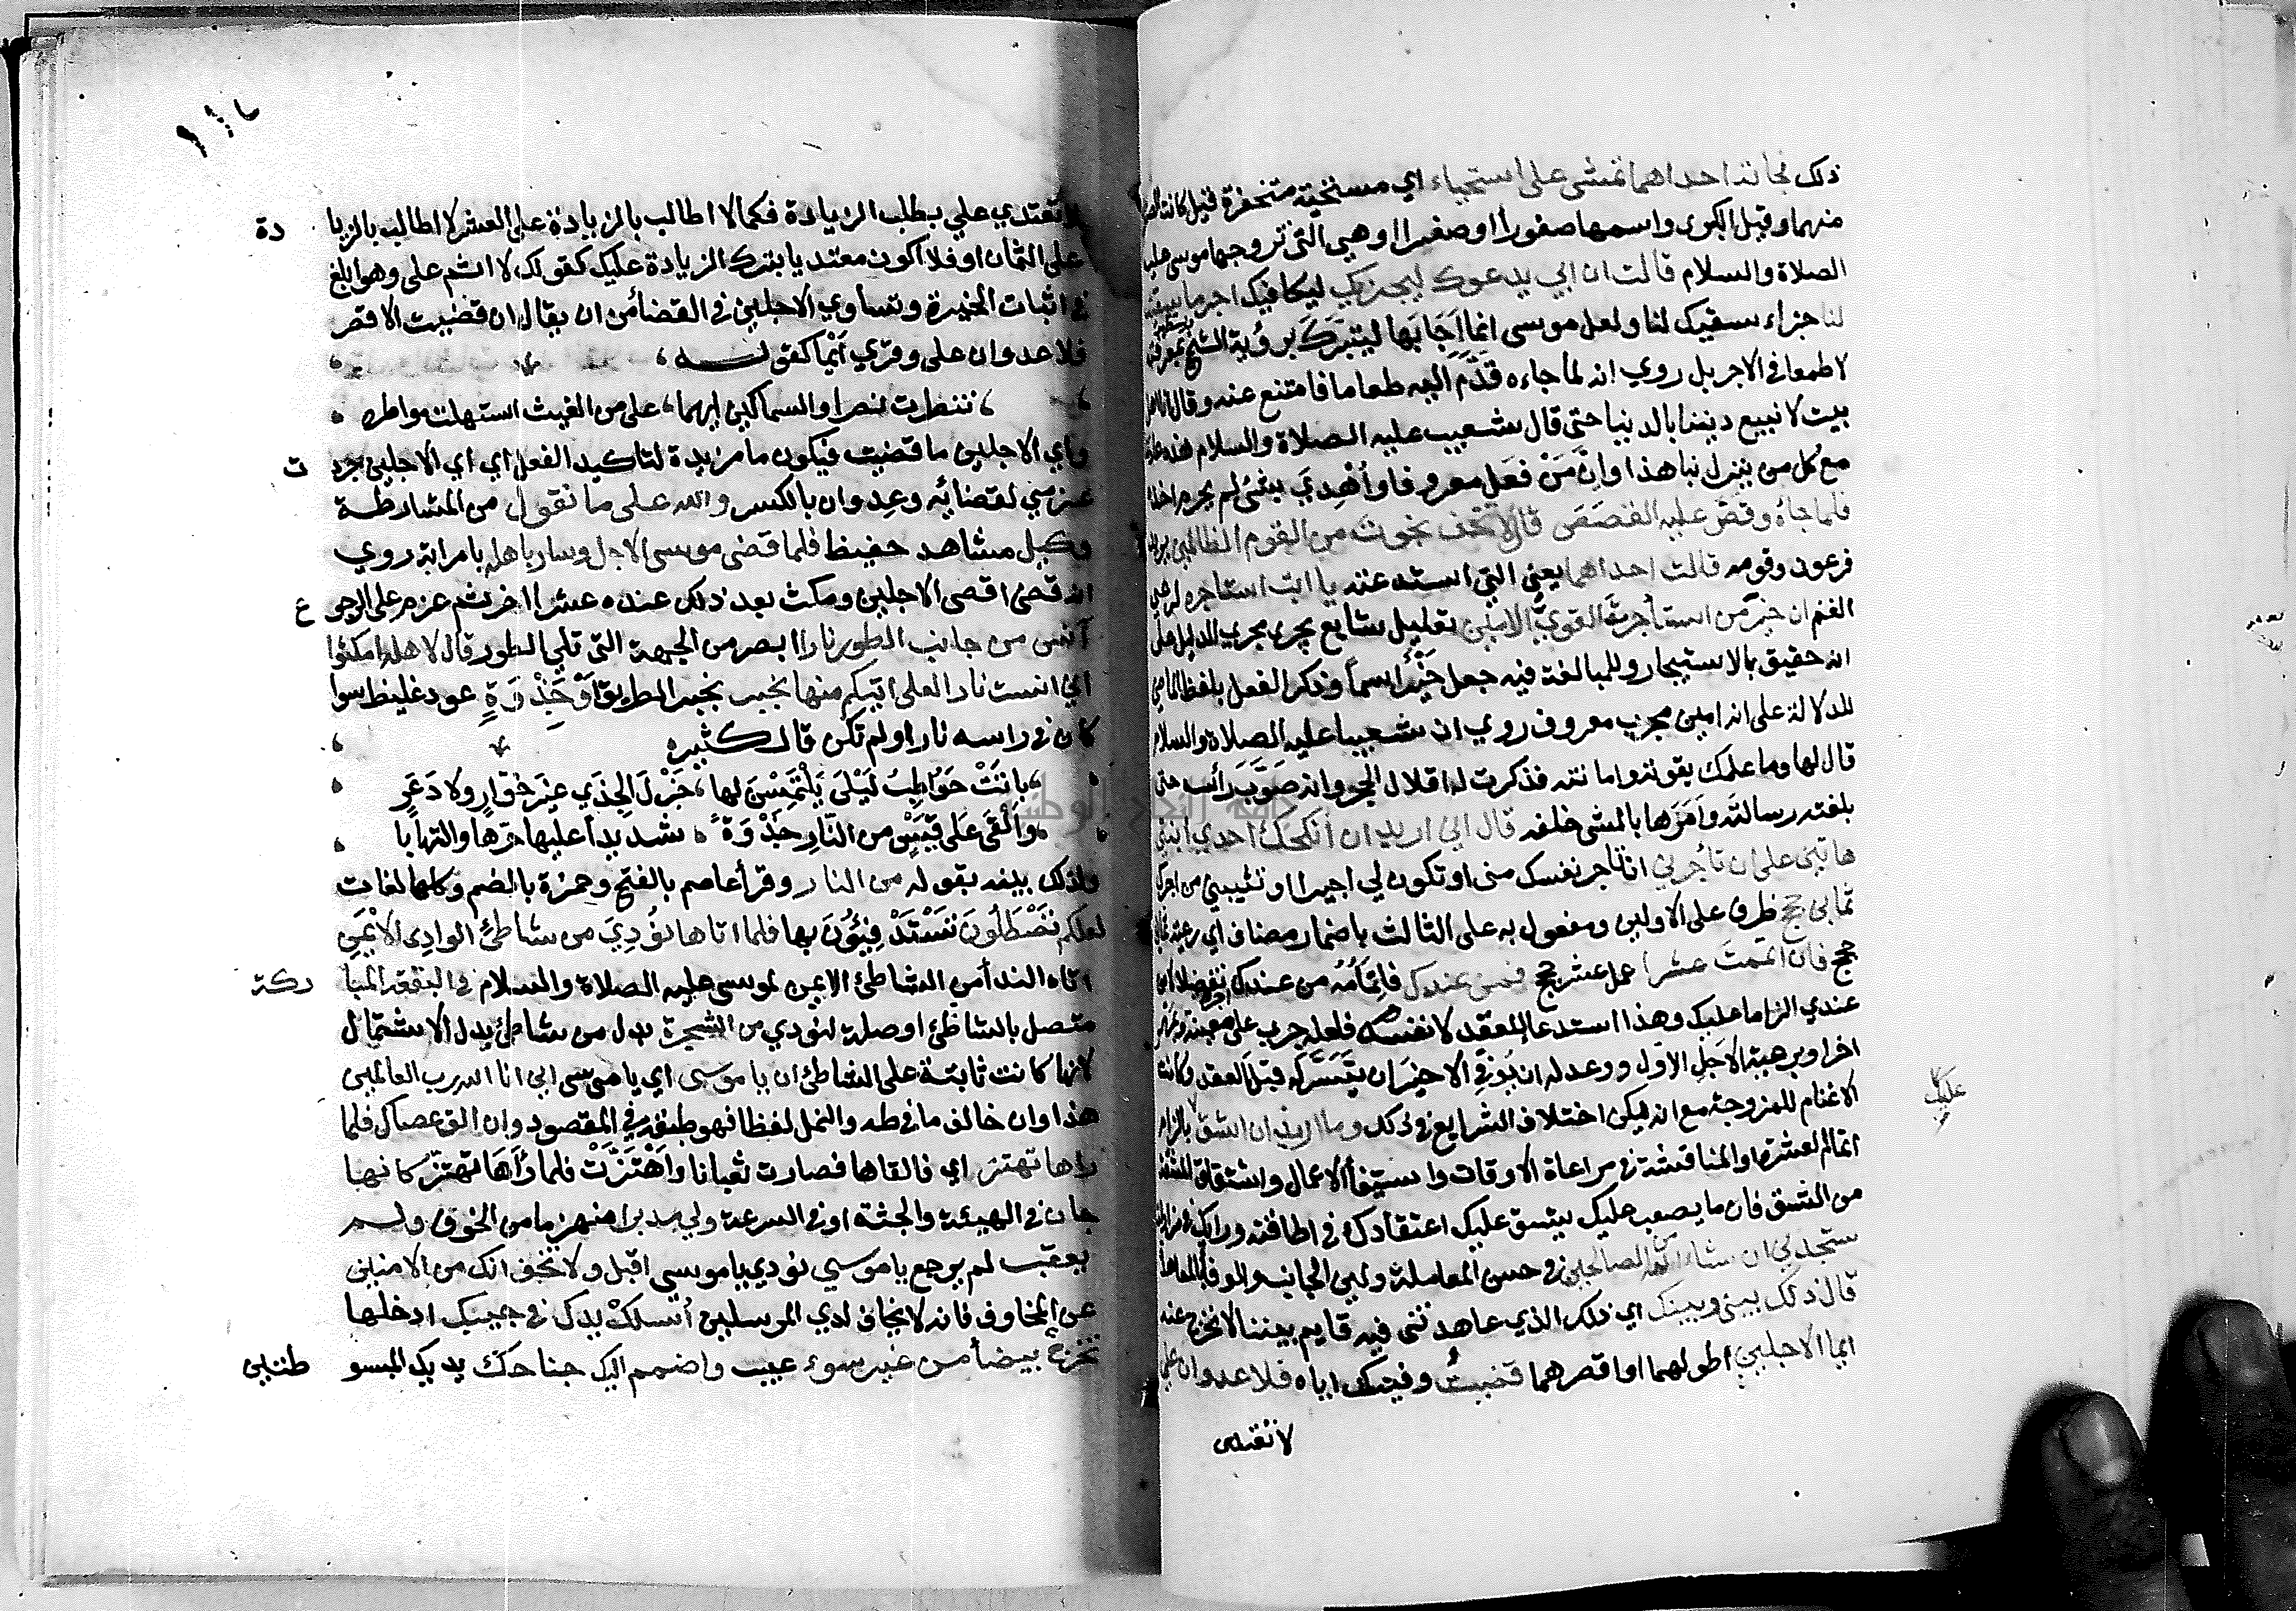 ذلك فجاءته احداهما تمشي على استحياء اي مستحيته متخفرة قيل كانت الصغرى
منهما وقيل الكبرى واسمها صفورا او صفيرا وهي التي تزوجها موسى عليه
الصلاة والسلام قالت ان ابي يدعوك ليجزيك ليكافيك اجر ما سقيت
لنا جزاء سقيك لنا ولعل موسى انما اجابها ليتبرك برؤية الشيخ
لا طمعا في الاجر بل روي انه لما جاءه قدم اليه طعاما فامتنع عنه وقال انا اهل
بيت لا نبيع ديننا بالدنيا حتى قال شعيب عليه الصلاة والسلام هذه عادتنا
مع كل من ينزل بنا هذا وان من فعل معروفا واهدي بشئ لم يحرم اخذه
فلما جاءه وقص عليه القصص قال لا تخف نجوت من القوم الظالمين يريد
فرعون وقومه قالت احداهما يعني التي استدعته يا ابت استاجره لرعي
الغنم ان خير من استأجرت القوي الامين تعليل شايع يجري مجرى الدليل على
انه حقيق بالاستيجار وللمبالغة فيه جعل خير اسما وذكر الفعل بلفظ الماضي
للدلالة على انه امين مجرب معروف روي ان شعيبا عليه الصلاة والسلام
قال لها وما علمك بقوته وامانته فذكرت له اقلال الحجر وانه صوب رأسه حتى
بلغته رسالته وامرها بالمشي خلفه قال اني اريد ان انكحك احدى ابنتي
هاتين على ان تأجرني ان تاجر نفسك مني او تكون لي اجيرا او تثيبني من اجرك
ثماني حجج ظرف على الاولين ومفعول به على الثالث باضمار مضاف اي رعية ثماني
حجج فان اتممت عشرا عمل عشر حجج فمن عندك فاتمامه من عندك تفضلا
عندي الزاما عليك وهذا استدعا للعقد لا نفسه فلعله جرى على معينة وبمهر
اخر او برعية الاجل الاول ووعد له ان يوفي الاخير ان تيسر له قبل العقد وكانت
الاغنام للمزوجة مع انه يمكن اختلاف الشرايع في ذلك وما اريد ان اشق عليك بالزام
اتمام العشر او المناقشة في مراعاة الاوقات واستيفا الاعمال واشتقاق المشقة
من الشق فان ما يصعب عليك يشق عليك اعتقادك في اطاقته ورايك في مزاولته
ستجدني ان شاء الله من الصالحين في حسن المعاملة ولين الجانب والوفا بالمعاهدة
قال ذلك بيني وبينك اي ذلك الذي عاهدتني فيه قايم بيننا لا نخرج عنه
ايما الاجلين اطولهما او اقصرهما قضيت وفيتك اياه فلا عدوان علي
لا تعتدى
لا تعتدي علي بطلب الزيادة فكما لا اطالب بالزيادة على العشر لا اطالب بالزيادة
على الثمان او فلا اكون معتديا بترك الزيادة عليك كقولك لا اثم علي وهو ابلغ
في اثبات الخيرة وتساوي الاجلين في القضا من ان يقال ان قضيت الاقصر
فلا عدوان علي وقري ايما كقوله
تنظرت نصرا والسماكين ايهما علي من الغيث استهلت مواطره
واي الاجلين ما قضيت فيكون ما مزيدة لتاكيد الفعل اي اي الاجلين جردت
عزمي لقضائه وعدوان بالكسر والله على ما نقول من المشارطة
وكيل مشاهد حفيظ فلما قضى موسى الاجل وسار باهله بامراته روي
انه قضى اقصى الاجلين ومكث بعد ذلك عنده عشرا اخر ثم عزم على الرجوع
آنس من جانب الطور نارا ابصر من الجهة التي تلي الطور قال لاهله امكثوا
اني انست نارا لعلي اتيكم منها بخبر بخبر الطريق او جذوة عود غليظ سوا
كان في راسه نار او لم تكن قال كثيره
باتت حواطب ليلى يلتمسن لها جزل الجذي غير خوار ولا دعر
والقى على قبس من النار جذوة شديدا عليها حرها والتهابا
ولذلك بينه بقوله من النار وقرأ عاصم بالفتح وحمزة بالضم وكلها لغات
لعلكم تصطلون تستدفيئون بها فلما اتاها نودي من شاطئ الوادي الايمن
اتاه الندا من الشاطئ الايمن لموسى عليه الصلاة والسلام في البقعة المباركة
متصل بالشاطئ او صلة لنودي من الشجرة بدل من شاطئ بدل الاشتمال
لانها كانت ثابتة على الشاطئ ان يا موسى اي يا موسى اني انا الله رب العالمين
هذا وان خالف ما في طه والنمل لفظا فهو طبقه في المقصود وان الق عصاك فلما
راها تهتز اي فالقاها فصارت ثعبانا واهتزت فلما رآها تهتز كانها
جان في الهيئة والجثة او في السرعة ولي مدبرا منهزما من الخوف ولم
يعقب لم يرجع يا موسى نودي يا موسى اقبل ولا تخف انك من الامنين
من المخاوف فانه لا يخاف لدي المرسلين اسلك يدك في جيبك ادخلها
تخرج بيضا من غير سوء عيب واضمم اليك جناحك يديك المبسوطتين